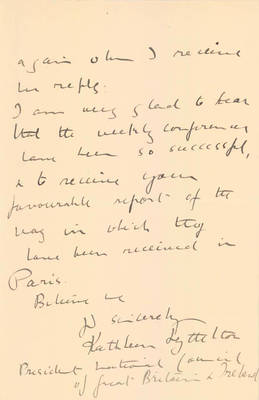 again when I receive
her reply.
I am very glad to hear
that the weekly conferences
have been so successful,
& to receive your
favourable report of the
way in which they
have been received in
Paris.
Believe me
Yr sincerely
Kathleen Lyttelton
President National Council
of Great Britain & Ireland